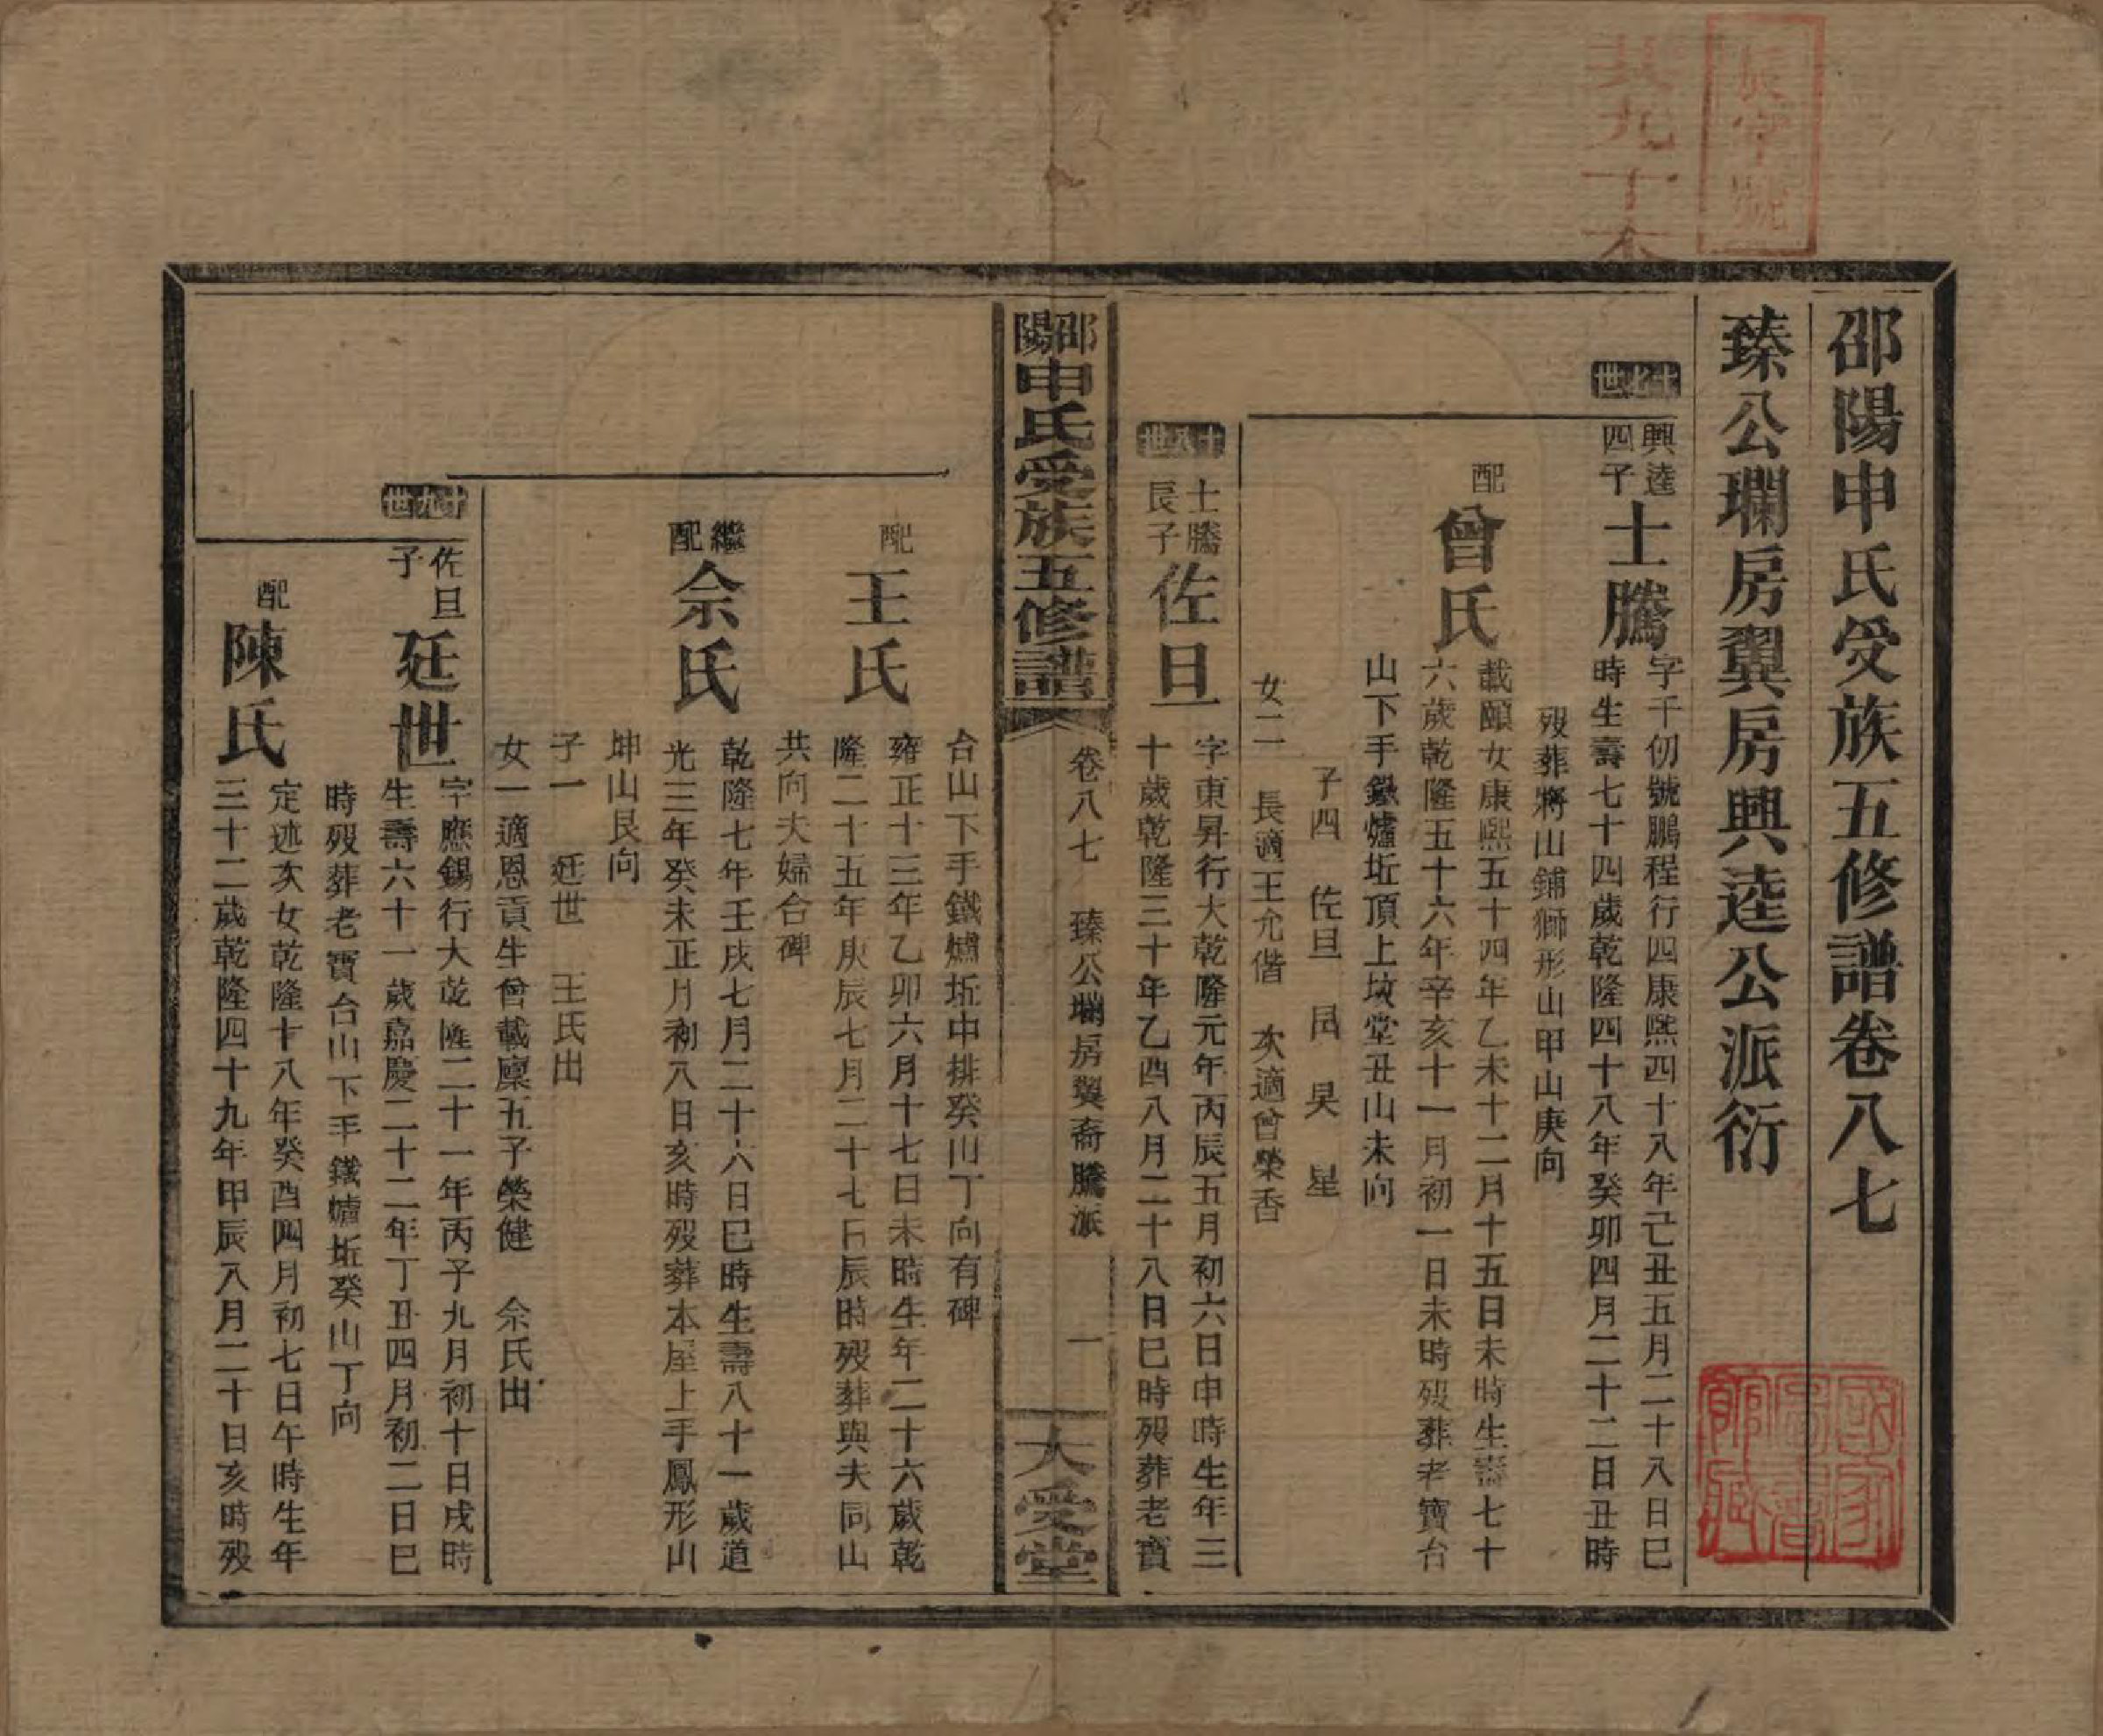 邵陽申氏受族五修譜卷八七
臻公瓓房翼房興逵公派衍
十七世
興逵四子
士騰
字千仞號鵬程行四康熙四十八年己丑五月二十八日巳
時生壽七十四歲乾隆四十八年癸卯四月二十二日丑時
歿葬將山鋪獅形山甲山庚向
配
曾氏
載頤女康熙五十四年乙未十二月十五日未時生壽七十
六歲乾隆五十六年辛亥十一月初一日未時歿葬老寶台
山下手鐵爐坵頂上坟堂丑山未向
子四 佐旦 昌 昊 星
女二 長適王允偕 次適曾榮香
十八世
士騰長子
佐旦
字東昇行大乾隆元年丙辰五月初六日申時生年三
十歲乾隆三十年乙酉八月二十八日巳時歿葬老寶
邵陽申氏受族五修譜
卷八七 臻公瓓房翼裔騰派
一
大受堂
台山下手鐵爐坵中排癸山丁向有碑
配
王氏
雍正十三年乙卯六月十七日未時生年二十六歲乾
隆二十五年庚辰七月二十七日辰時歿葬與夫同山
共向夫婦合碑
繼配
佘氏
乾隆七年壬戌七月二十六日巳時生壽八十一歲道
光三年癸未正月初八日亥時歿葬本屋上手鳳形山
坤山艮向
子一 廷世 王氏出
女一適恩貢生曾載廩五子榮健 佘氏出
十九世
佐旦子
廷世
字應錫行大乾隆二十一年丙子九月初十日戌時
生壽六十一歲嘉慶二十二年丁丑四月初二日巳
時歿葬老寶台山下手鐵爐坵癸山丁向
配
陳氏
定述次女乾隆十八年癸酉四月初七日午時生年
三十二歲乾隆四十九年甲辰八月二十日亥時歿